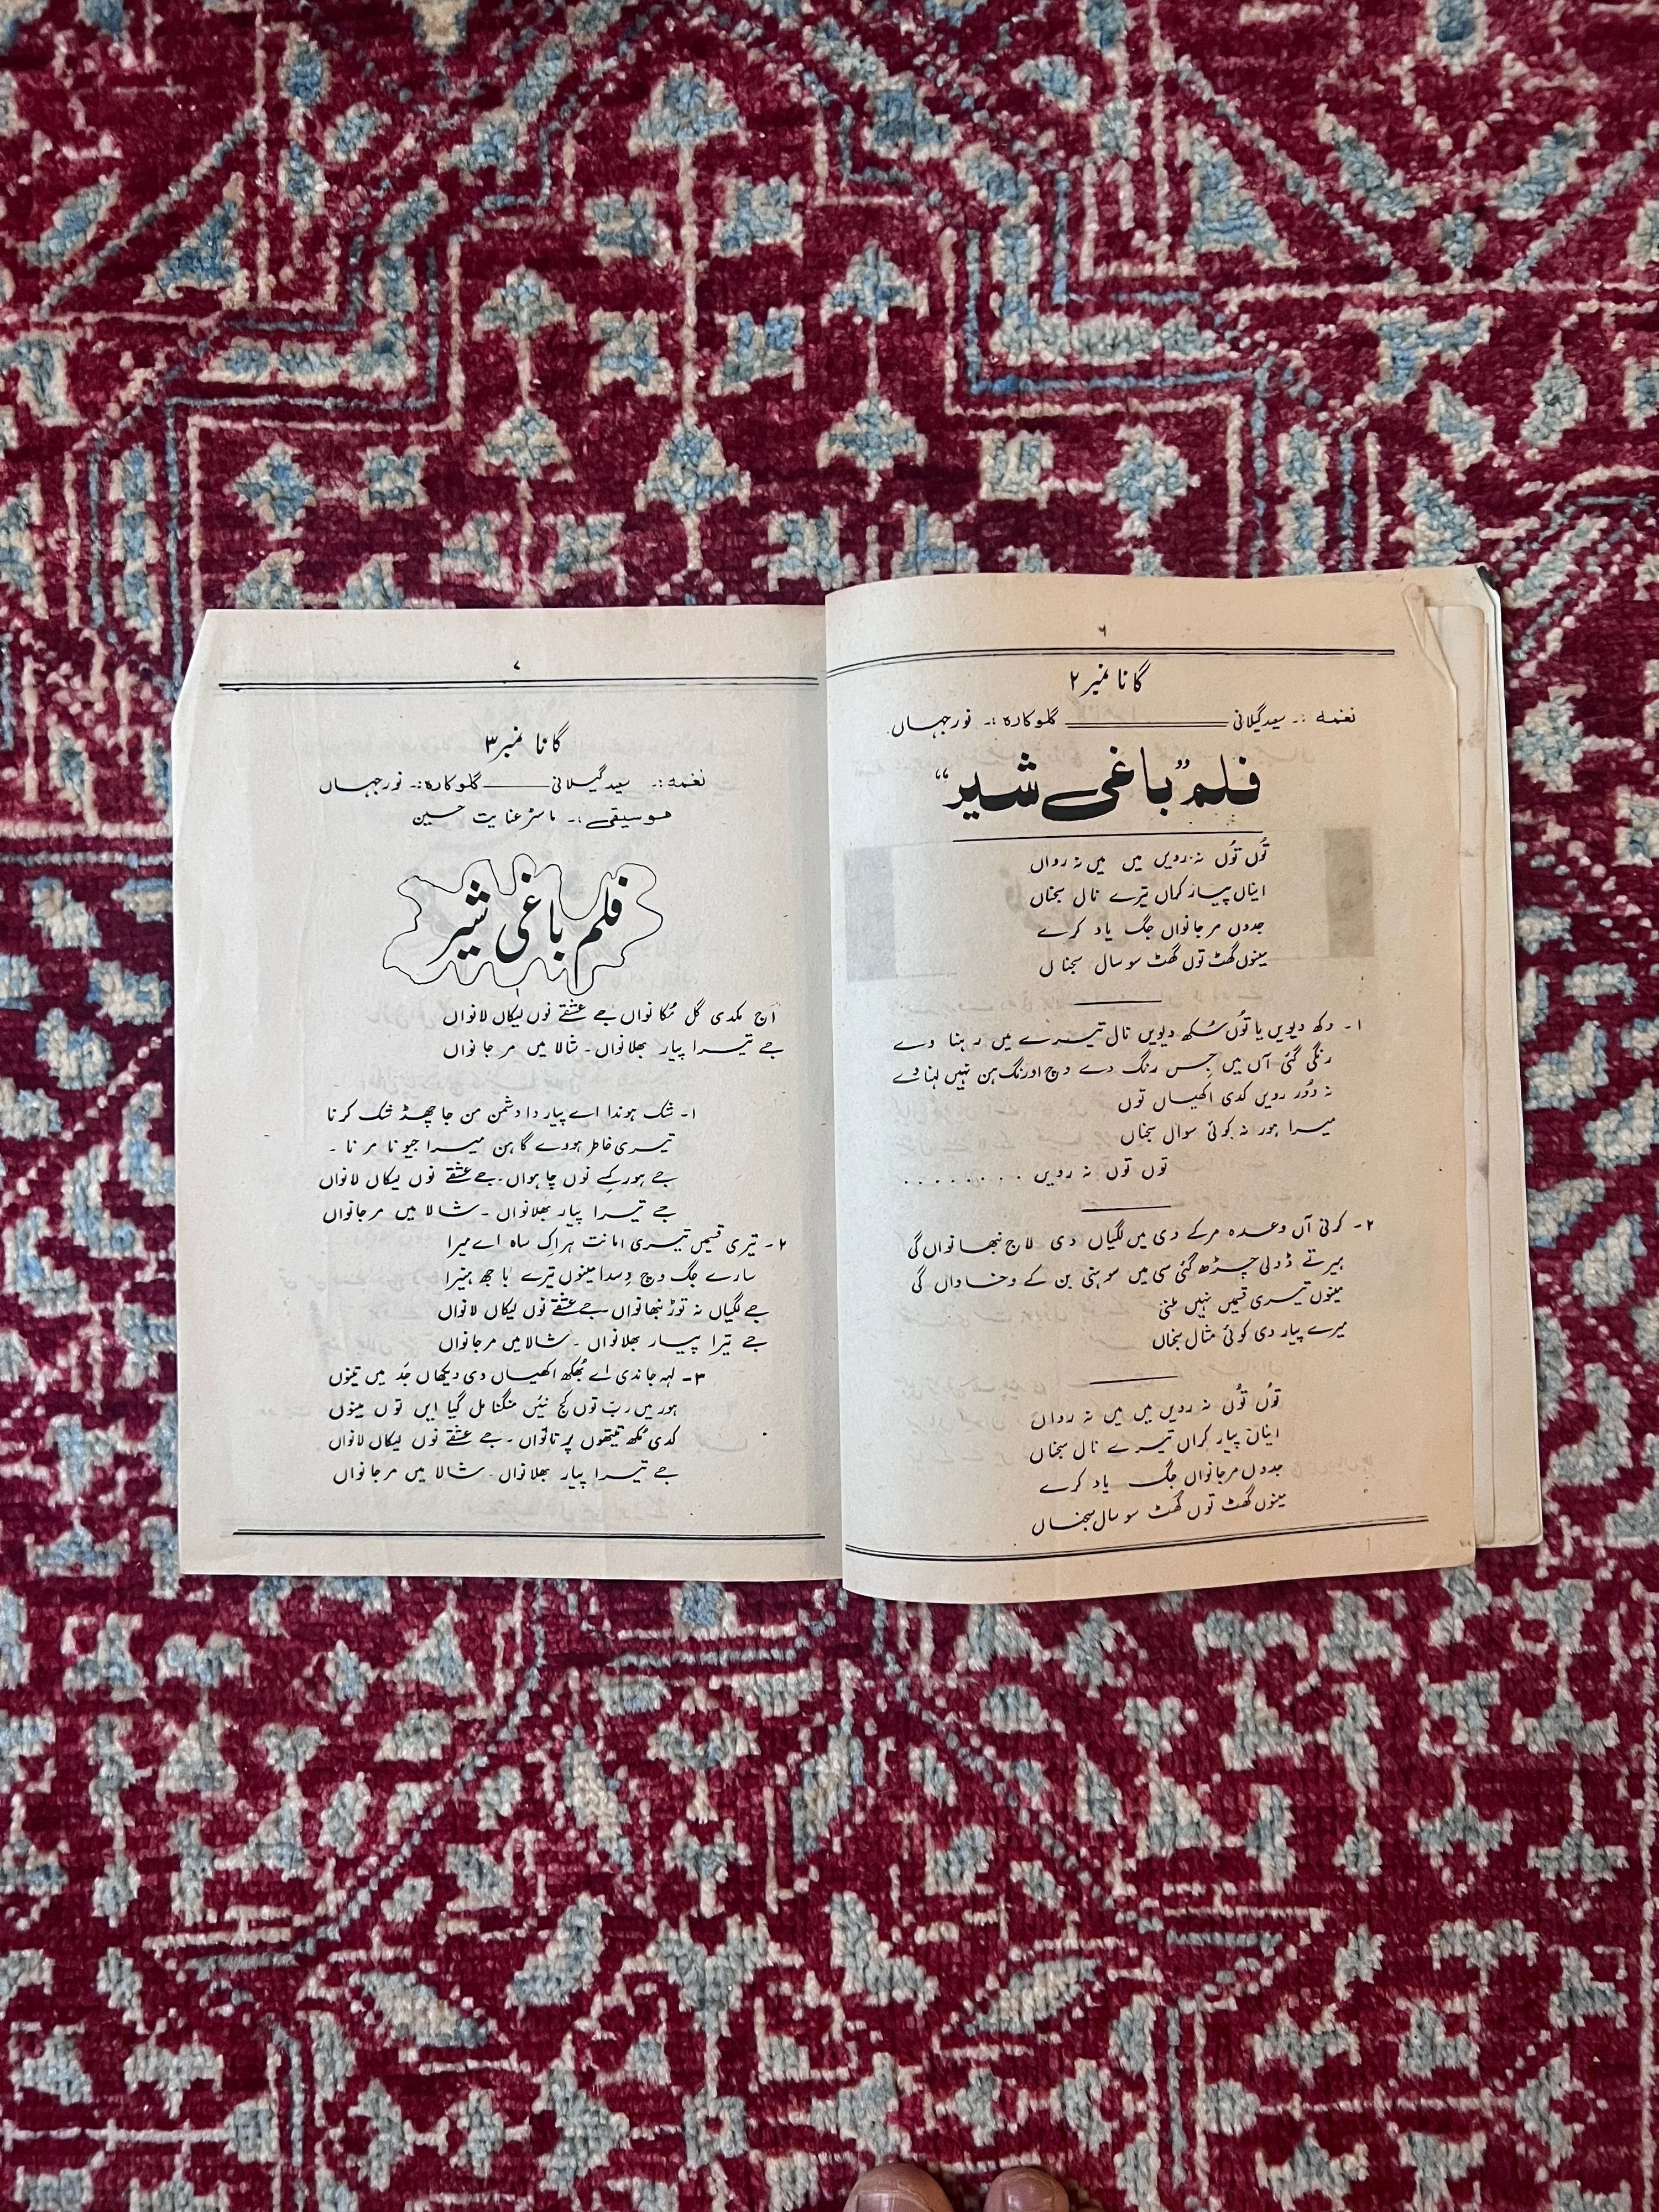 ۶
گانا نمبر ۲
نغمہ :۔ سید گیلانی ــــــ گلوکارہ :۔ نورجہاں
فلم "باغی شیر"
تُوں تُوں نہ رویں میں میں نہ رواں
ایناں پیار کراں تیرے نال سجناں
جدوں مرجانواں جگ یاد کرے
مینوں گھٹ توں گھٹ سو سال سجناں
۱۔ دکھ دیویں یا تُوں سُکھ دیویں نال تیرے میں رہنا وے
رنگی گئی آں میں جس رنگ دے وچ اورنگ ہن نہیں لہنا وے
نہ دُور رویں کدی اکھیاں توں
میرا ہور نہ کوئی سوال سجناں
توں توں نہ رویں . . . . . . . .
۲۔ کرنی آں وعدہ مرکے دی میں لگیاں دی لاج نبھانواں گی
ہیرتے ڈولی چڑھ گئی سی میں سوہنی بن کے وخاداں گی
مینوں تیسری قسمیں نہیں ملنی
میرے پیار دی کوئی مثال سجناں
تُوں تُوں نہ رویں میں میں نہ رواں
ایناں پیار کراں تیرے نال سجناں
جدوں مرجانواں جگ یاد کرے
مینوں گھٹ توں گھٹ سو سال سجناں
۷
گانا نمبر ۳
نغمہ :۔ سید گیلانی ــــــ گلوکارہ :۔ نورجہاں
موسیقی :۔ ماسٹر عنایت حسین
فلم باغی شیر
اَج مکدی گل مُکا نواں جے عشقے نوں لیکاں لانواں
جے تیرا پیار بھلانواں ۔ شالا میں مرجانواں
۱۔ شک ہوندا اے پیار دا دشمن من جا چھڈ شک کرنا
تیری خاطر ہووے گا ہن میرا جیونا مرنا ۔
جے ہور کسے نوں چاہواں ۔ جے عشقے نوں لیکاں لانواں
جے تیرا پیار بھلانواں ۔ شالا میں مرجانواں
۲۔ تیری قسمیں تیری امانت ہر اک ساہ اے میرا
سارے جگ وچ دِسدا مینوں تیرے باجھ ہنیرا
جے لگیاں نہ توڑ نبھانواں ۔ جے عشقے نوں لیکاں لانواں
جے تیرا پیار بھلانواں ۔ شالا میں مرجانواں
۳۔ لہہ جاندی اے بُھکھ اکھیاں دی دیکھاں جَد میں تینوں
ہور میں ربّ توں کج نئیں منگنا مل گیا ایں توں مینوں
کدی مُکھ تیتھوں پرتانواں ۔ جے عشقے نوں لیکاں لانواں
جے تیرا پیار بھلانواں ۔ شالا میں مرجانواں